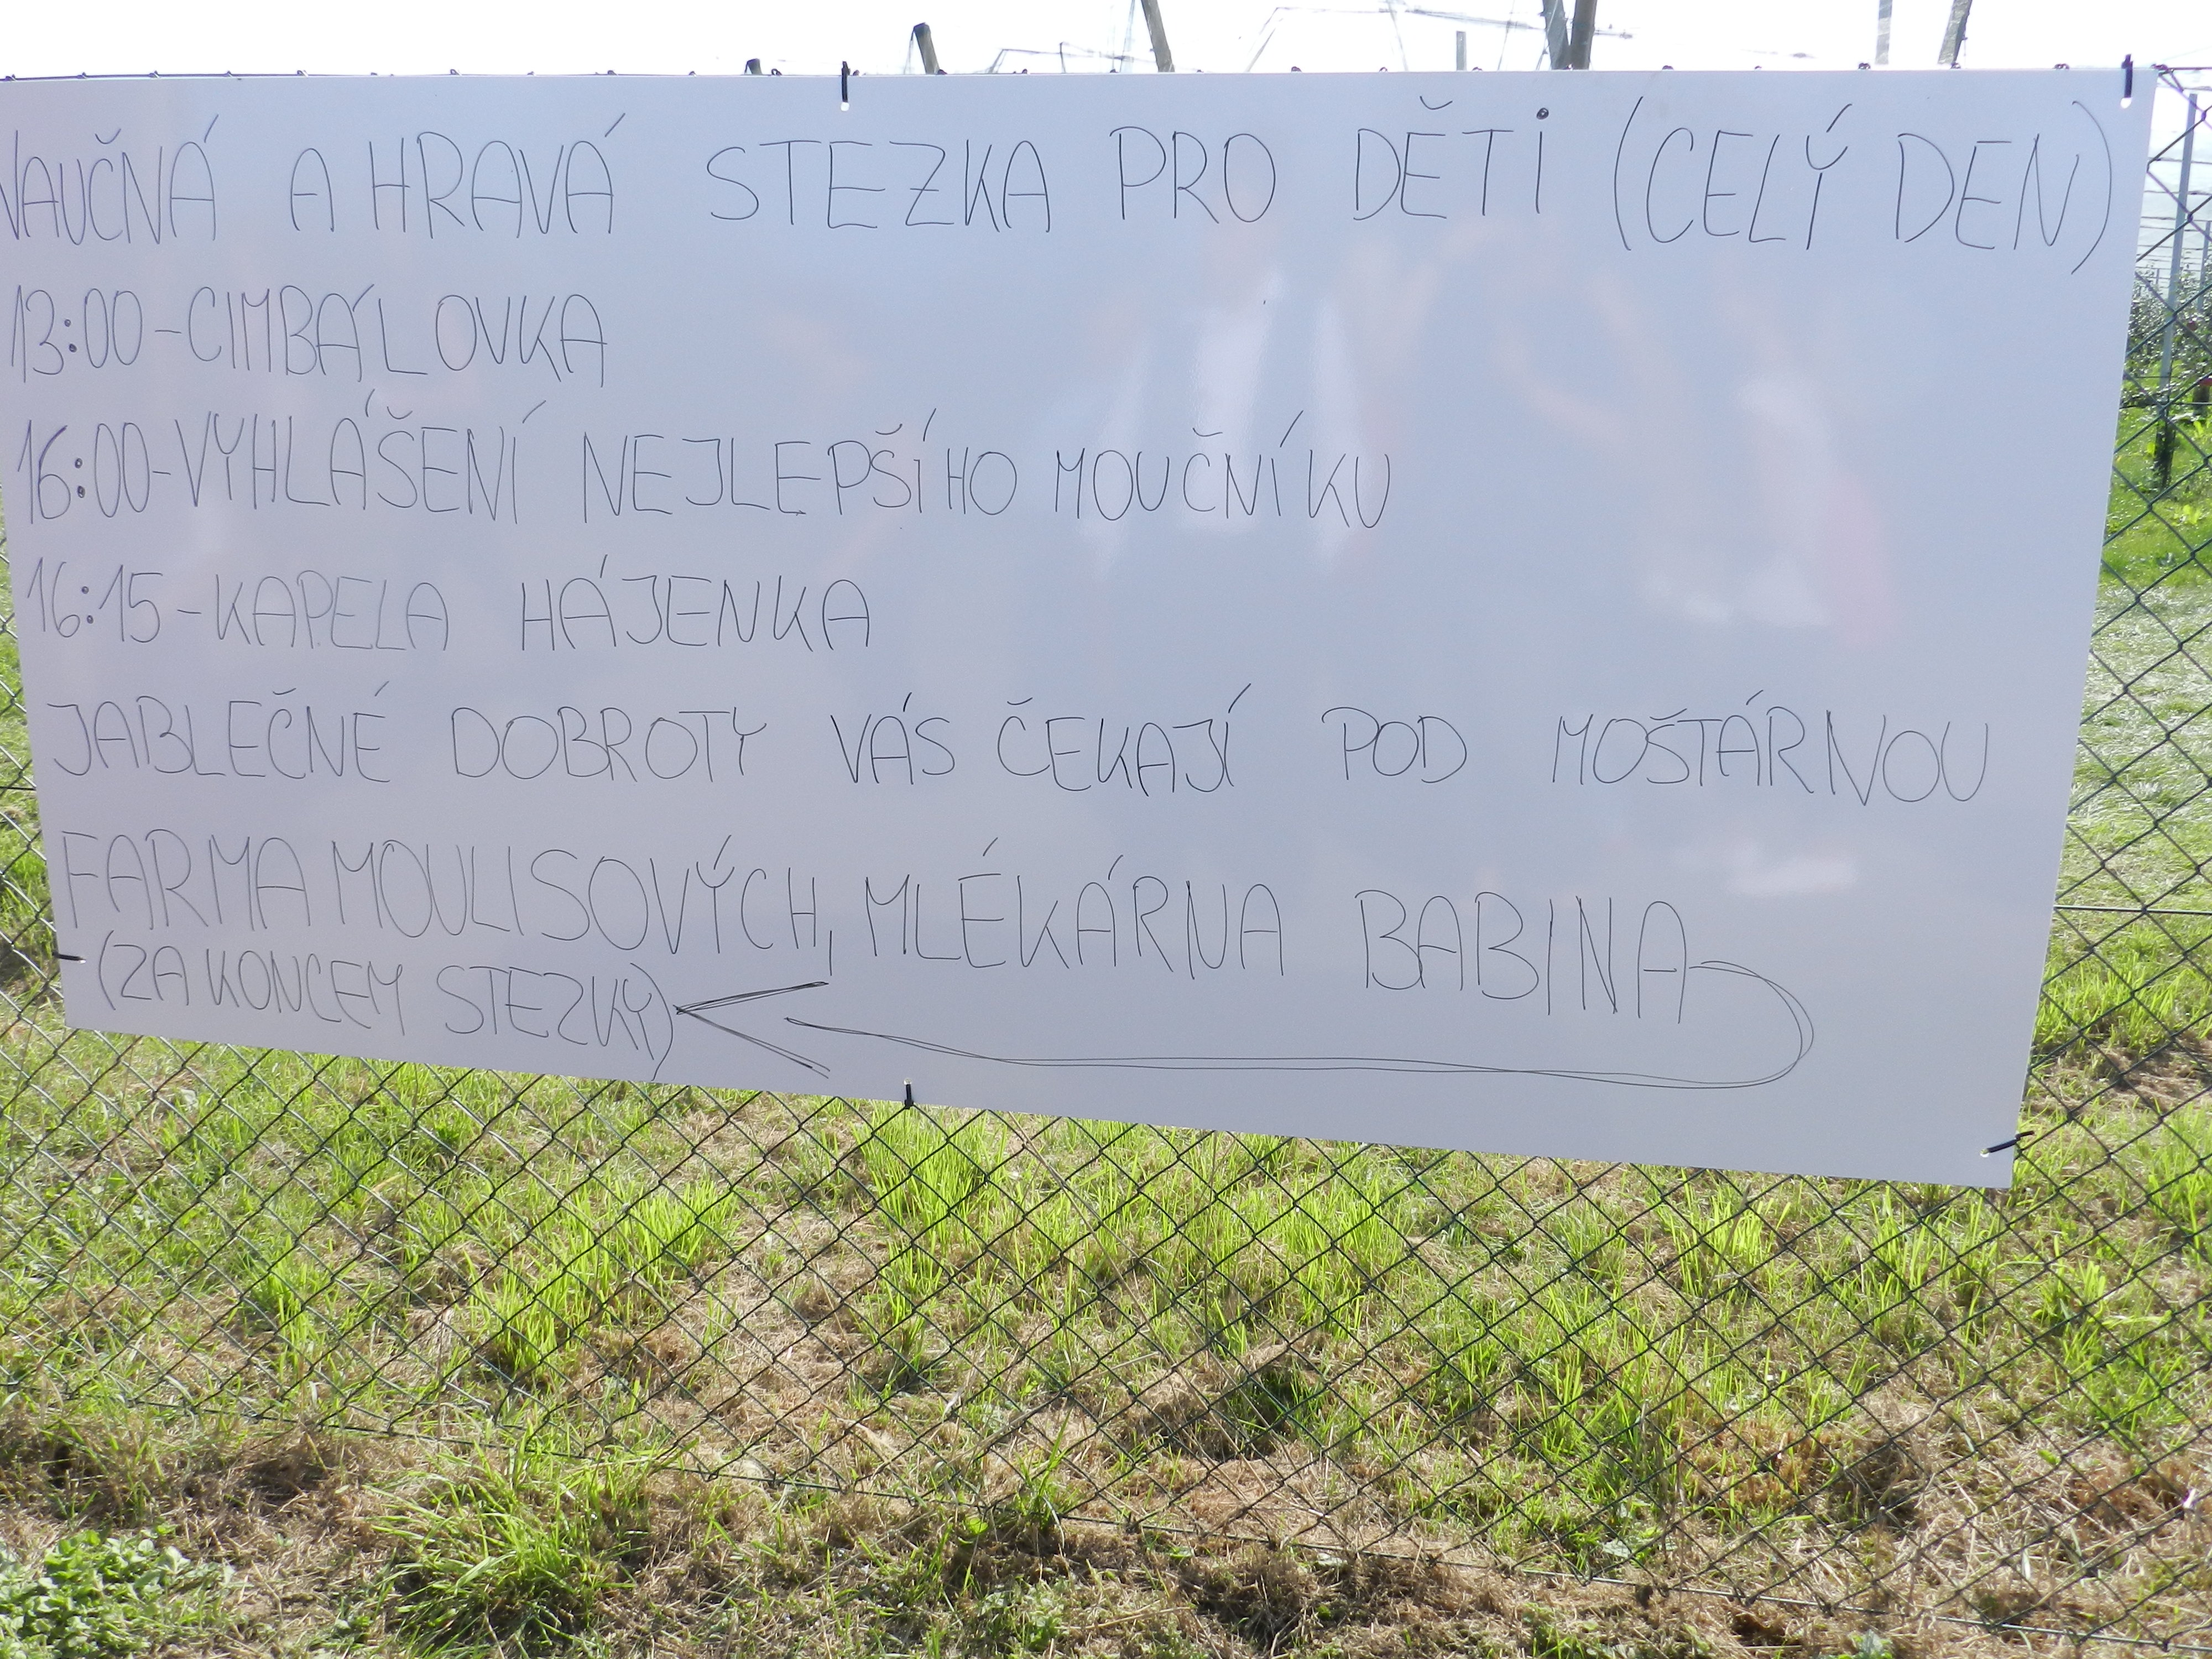 NAUČNÁ A HRAVÁ STEZKA PRO DĚTI (CELÝ DEN)
13:00-CIMBÁLOVKA
16:00-VYHLÁŠENÍ NEJLEPŠÍHO MOUČNÍKU
16:15-KAPELA HÁJENKA
JABLEČNÉ DOBROTY VÁS ČEKAJÍ POD MOŠTÁRNOU
FARMA MOULISOVÝCH, MLÉKÁRNA BABINA
(ZA KONCEM STEZKY)